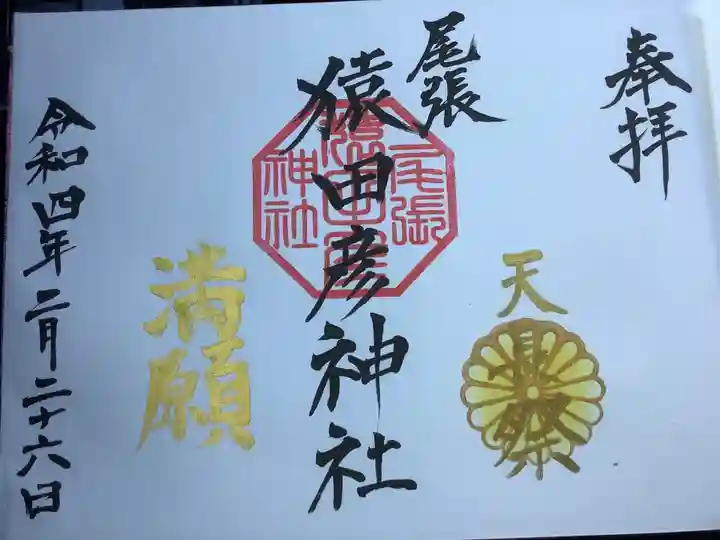 奉拝
天長祭
尾張
猿田彦神社
尾張
猿田彦
神社
満願
令和四年二月二十六日